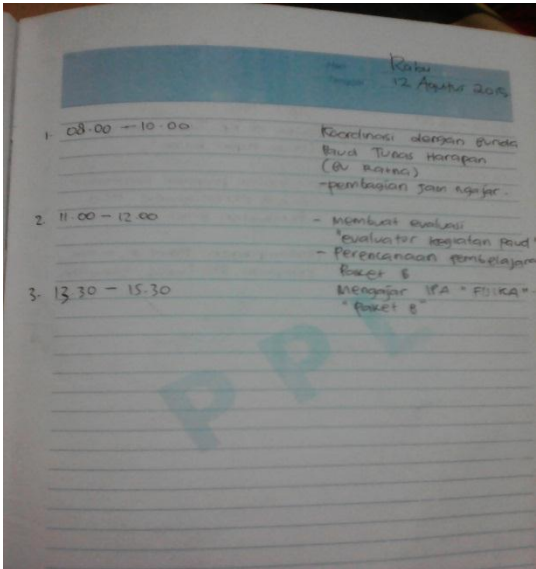 Hari : Rabu
Tanggal : 12 Agustus 2015
1. 08.00 – 10.00 Koordinasi dengan Bunda
Paud Tunas Harapan
(Bu Ratna)
- pembagian jam ngajar.
2. 11.00 – 12.00 - Membuat evaluasi
"evaluator kegiatan paud"
- Perencanaan pembelajaran
Paket B
3. 13.30 – 15.30 Mengajar IPA "FISIKA"
"Paket B"
PPL